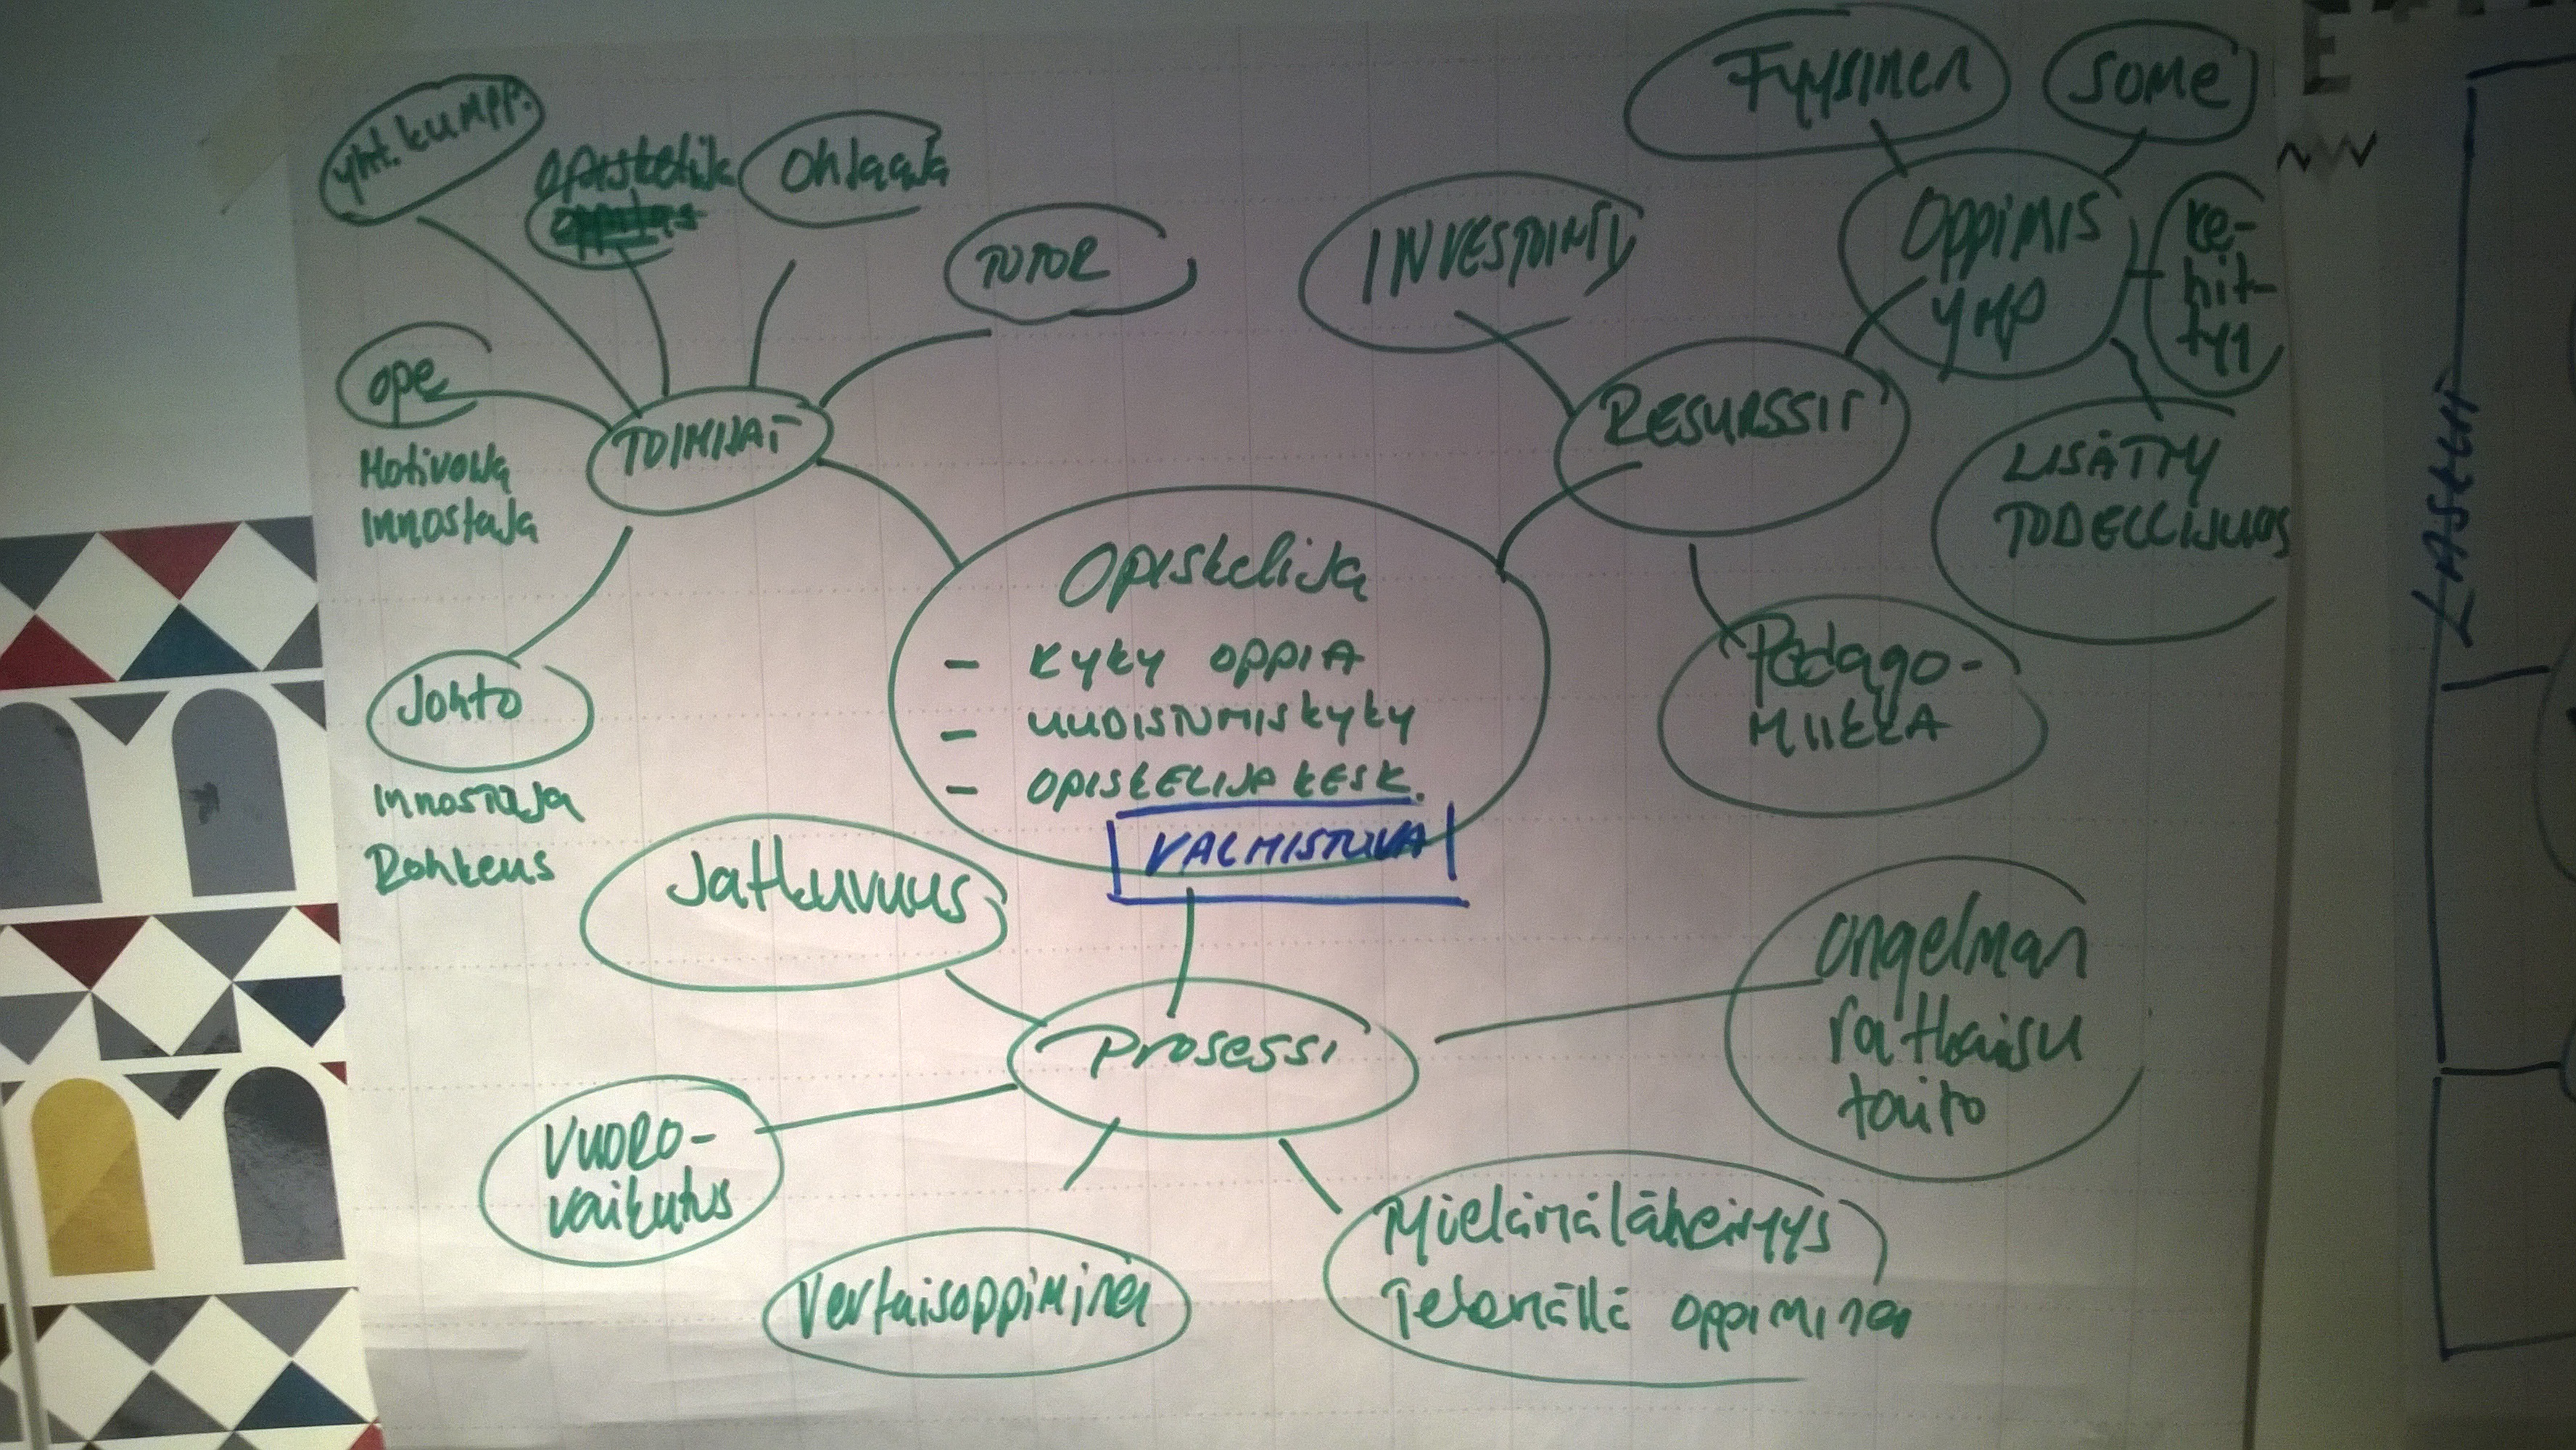 yht. kumpp.
opiskelija
ohjaaja
TUTOR
ope
Motivoija
Innostaja
TOIMIJAT
Johto
Innostaja
Rohkeus
INVESTOINTI
Fyysinen
SOME
OPPIMIS
YMP
ke-
hit-
tyy
RESURSSIT
LISÄTTY
TODELLISUUS
Pedago-
MIIKKA
Opiskelija
- KYKY OPPIA
- UUDISTUMISKYKY
- OPISKELIJAKESK.
VALMISTUVA
Jatkuvuus
Prosessi
ongelman
ratkaisu
taito
VUORO-
vaikutus
Vertaisoppiminen
Työelämäläheisyys
Tekemällä oppiminen
E
LASKUT